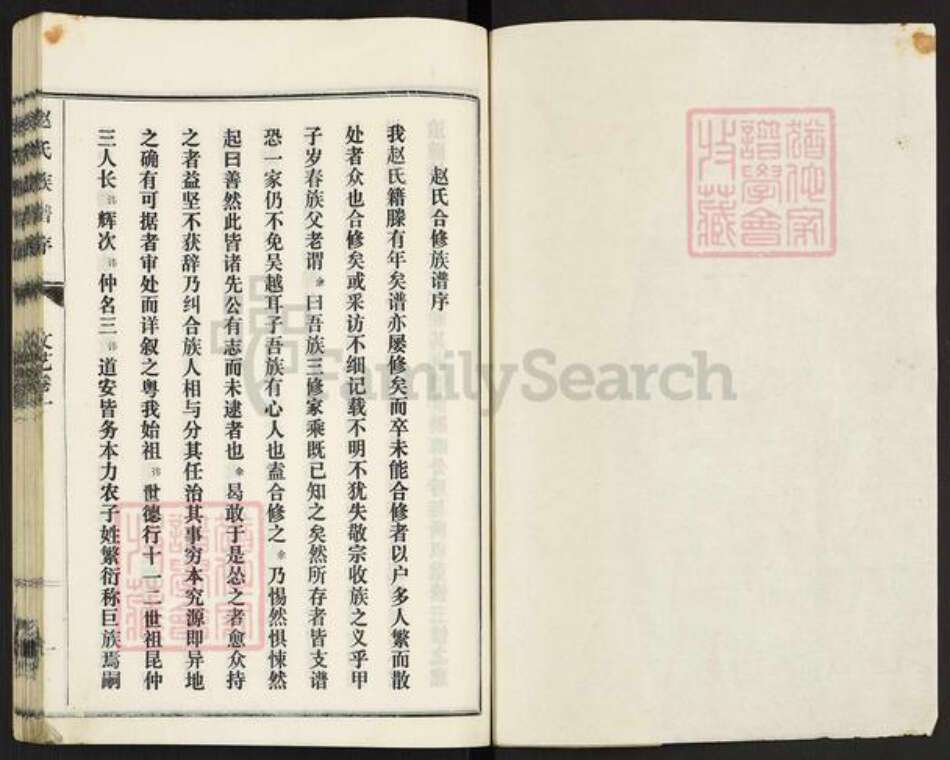 赵氏合修族谱序
我赵氏籍滕有年矣谱亦屡修矣而卒未能合修者以户多人繁而散
处者众也合修矣或采访不细记载不明不犹失敬宗收族之义乎甲
子岁春族父老谓余曰吾族三修家乘既已知之矣然所存者皆支谱
恐一家仍不免吴越耳子吾族有心人也盍合修之余乃惕然惧悚然
起曰善然此皆诸先公有志而未逮者也余曷敢于是怂之者愈众持
之者益坚不获辞乃纠合族人相与分其任治其事穷本究源即异地
之确有可据者审处而详叙之粤我始祖讳世德行十一二世祖昆仲
三人长讳辉次讳仲名三讳道安皆务本力农子姓繁衍称巨族焉嗣
赵氏族谱序
文艺卷一
一
猶他家
譜學會
收藏
猶他家
譜學會
收藏
FamilySearch